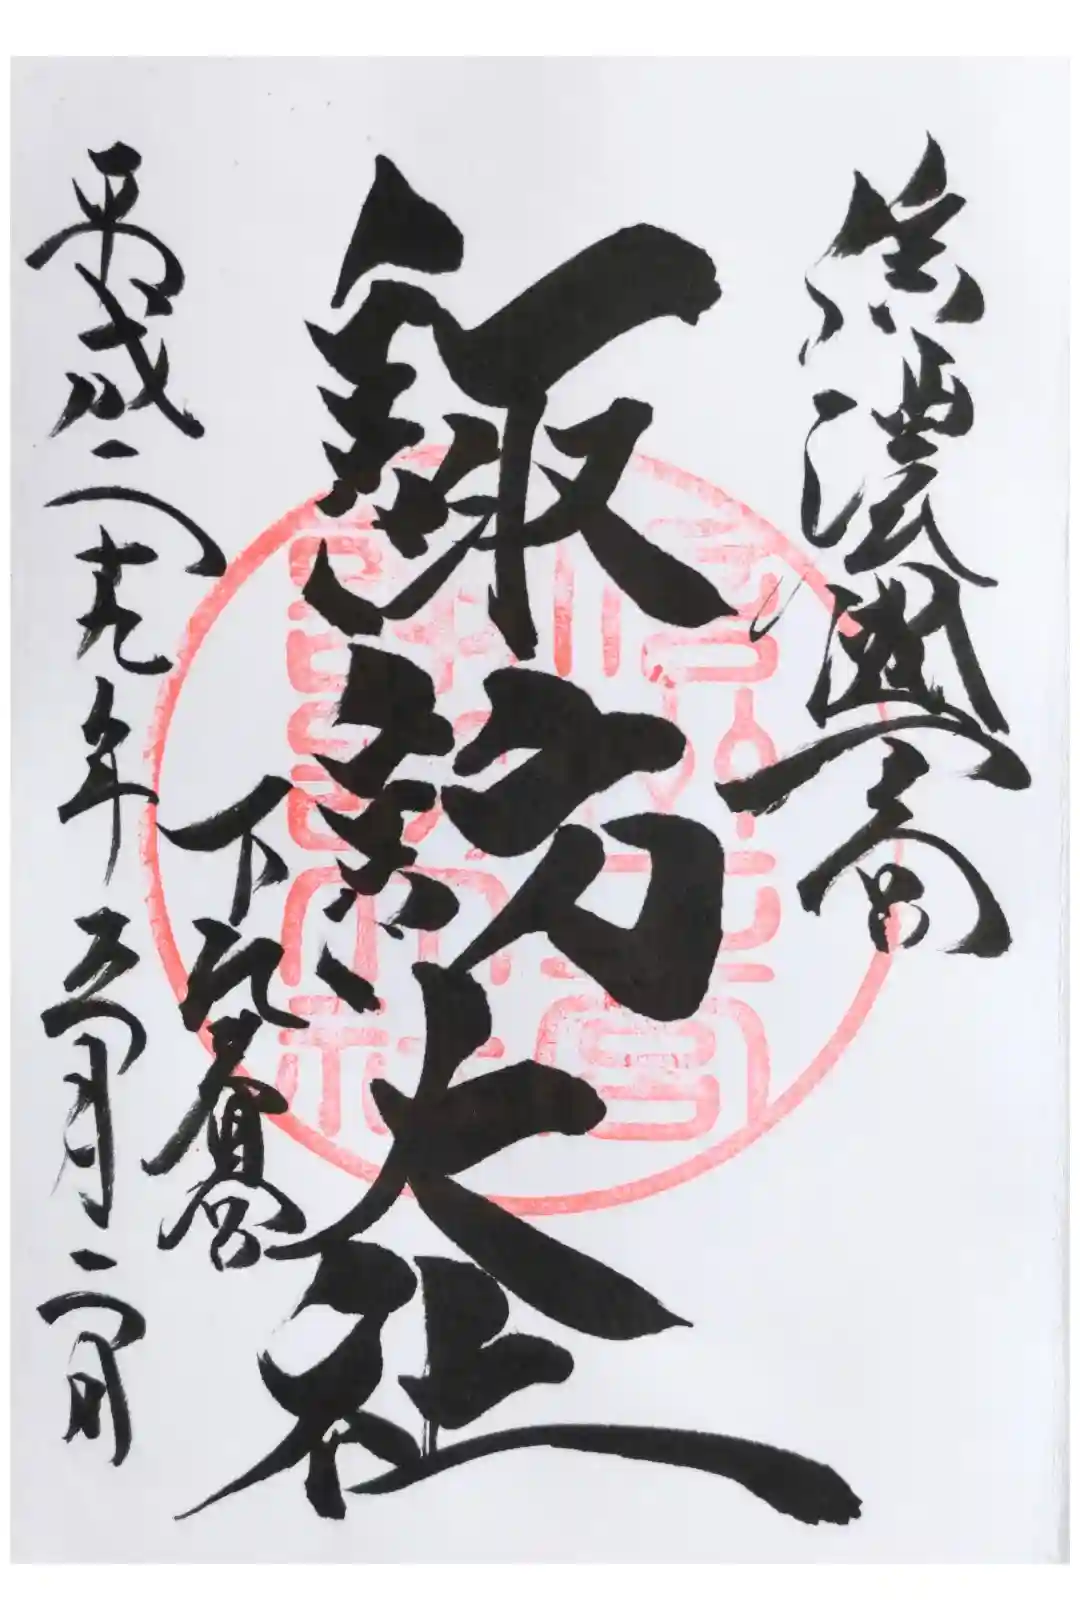 信濃國一之宮
諏訪大社
下社春宮
平成二十九年五月二日